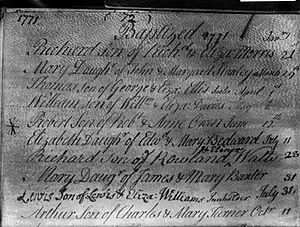 1771 72
Baptized 1771
Richard son of Rich.d & Eliza Morris Jan.y 21
Mary Daugh.r of John & Margaret March 19th
Thomas, son of George & Eliza Ellis April 1st
William Son of Will.m & Eliza Davies May
Robert Son of Rob.t & Anne Owen June 12th
Elizabeth Daugh.r of Edw.d & Mary Bedward July 11
Richard Son of Rowland Watts 23
Mary Daug.r of James & Mary Baxter 31
Lewis Son of Lewis & Eliza: Williams Innholder July 31
Arthur Son of Charles & Mary Turner Oct.r 11